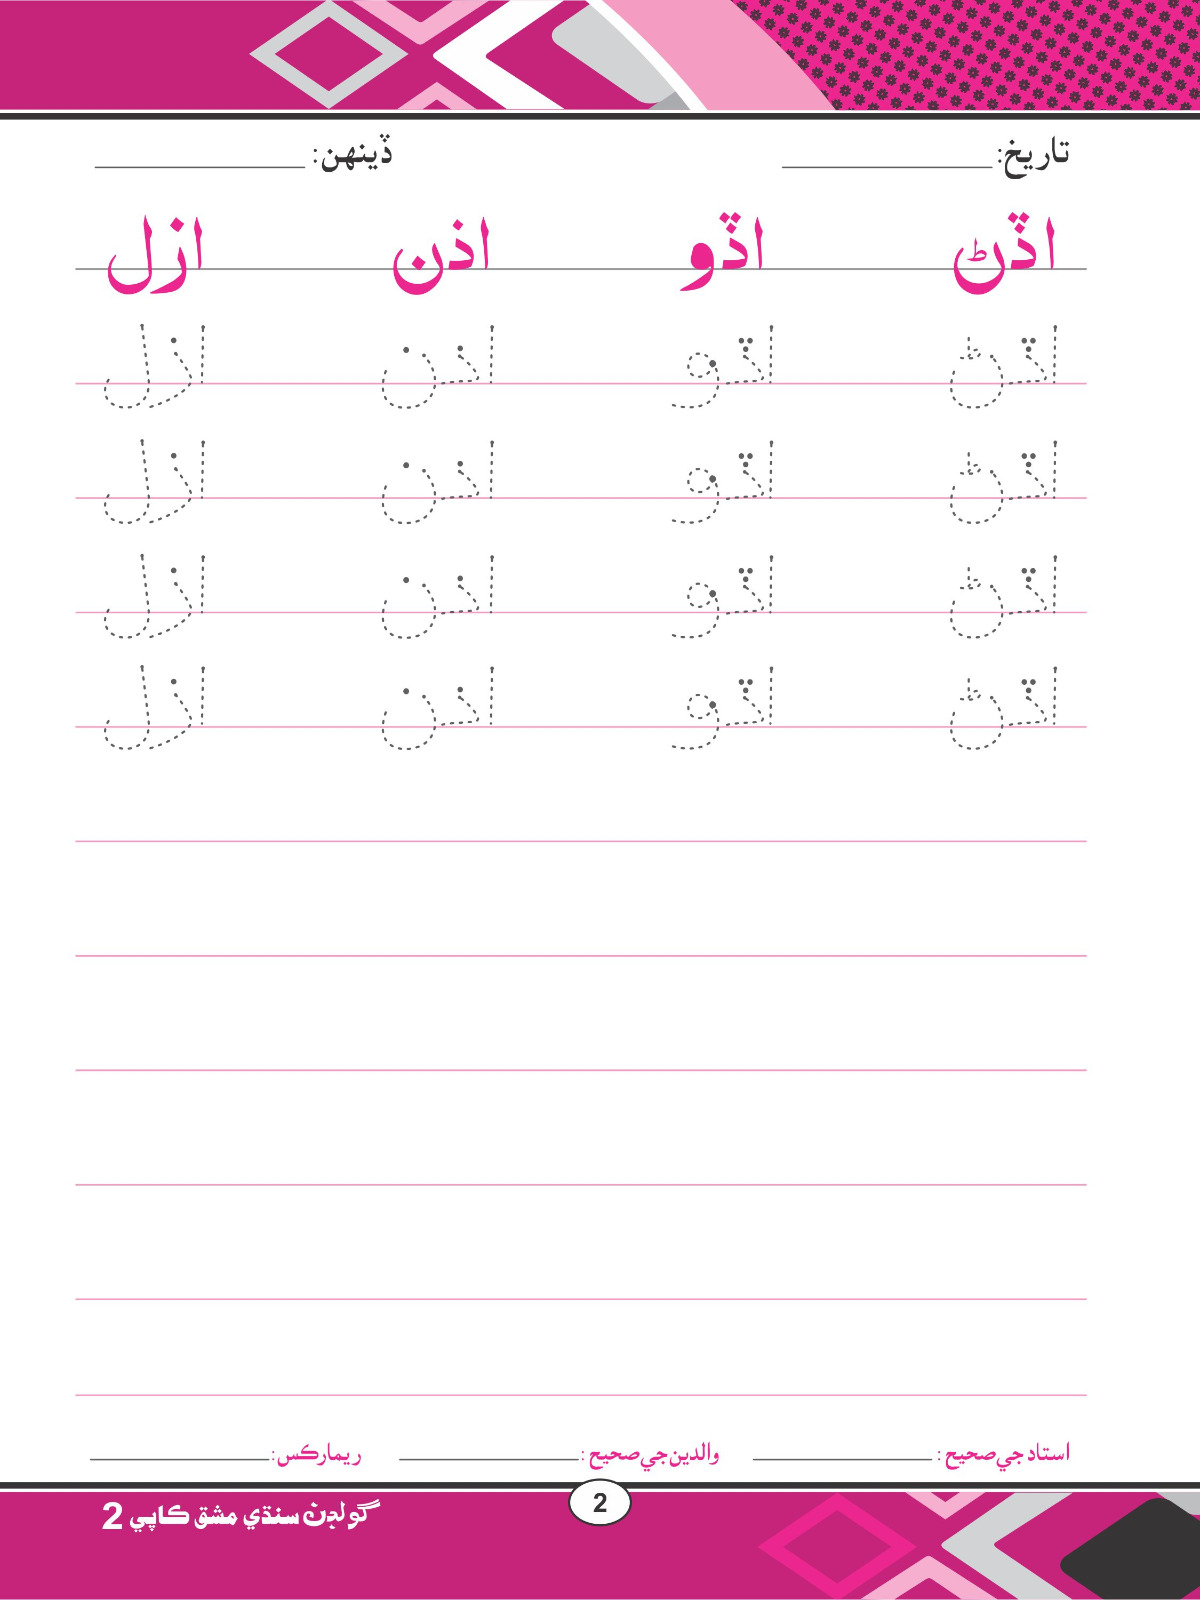 تاريخ: ڏينهن:
اڏڻ اڏو اذن ازل
اڏڻ اڏو اذن ازل
اڏڻ اڏو اذن ازل
اڏڻ اڏو اذن ازل
اڏڻ اڏو اذن ازل
استاد جي صحيح: والدين جي صحيح: ريمارڪس:
2
گولڊن سنڌي مشق ڪاپي 2